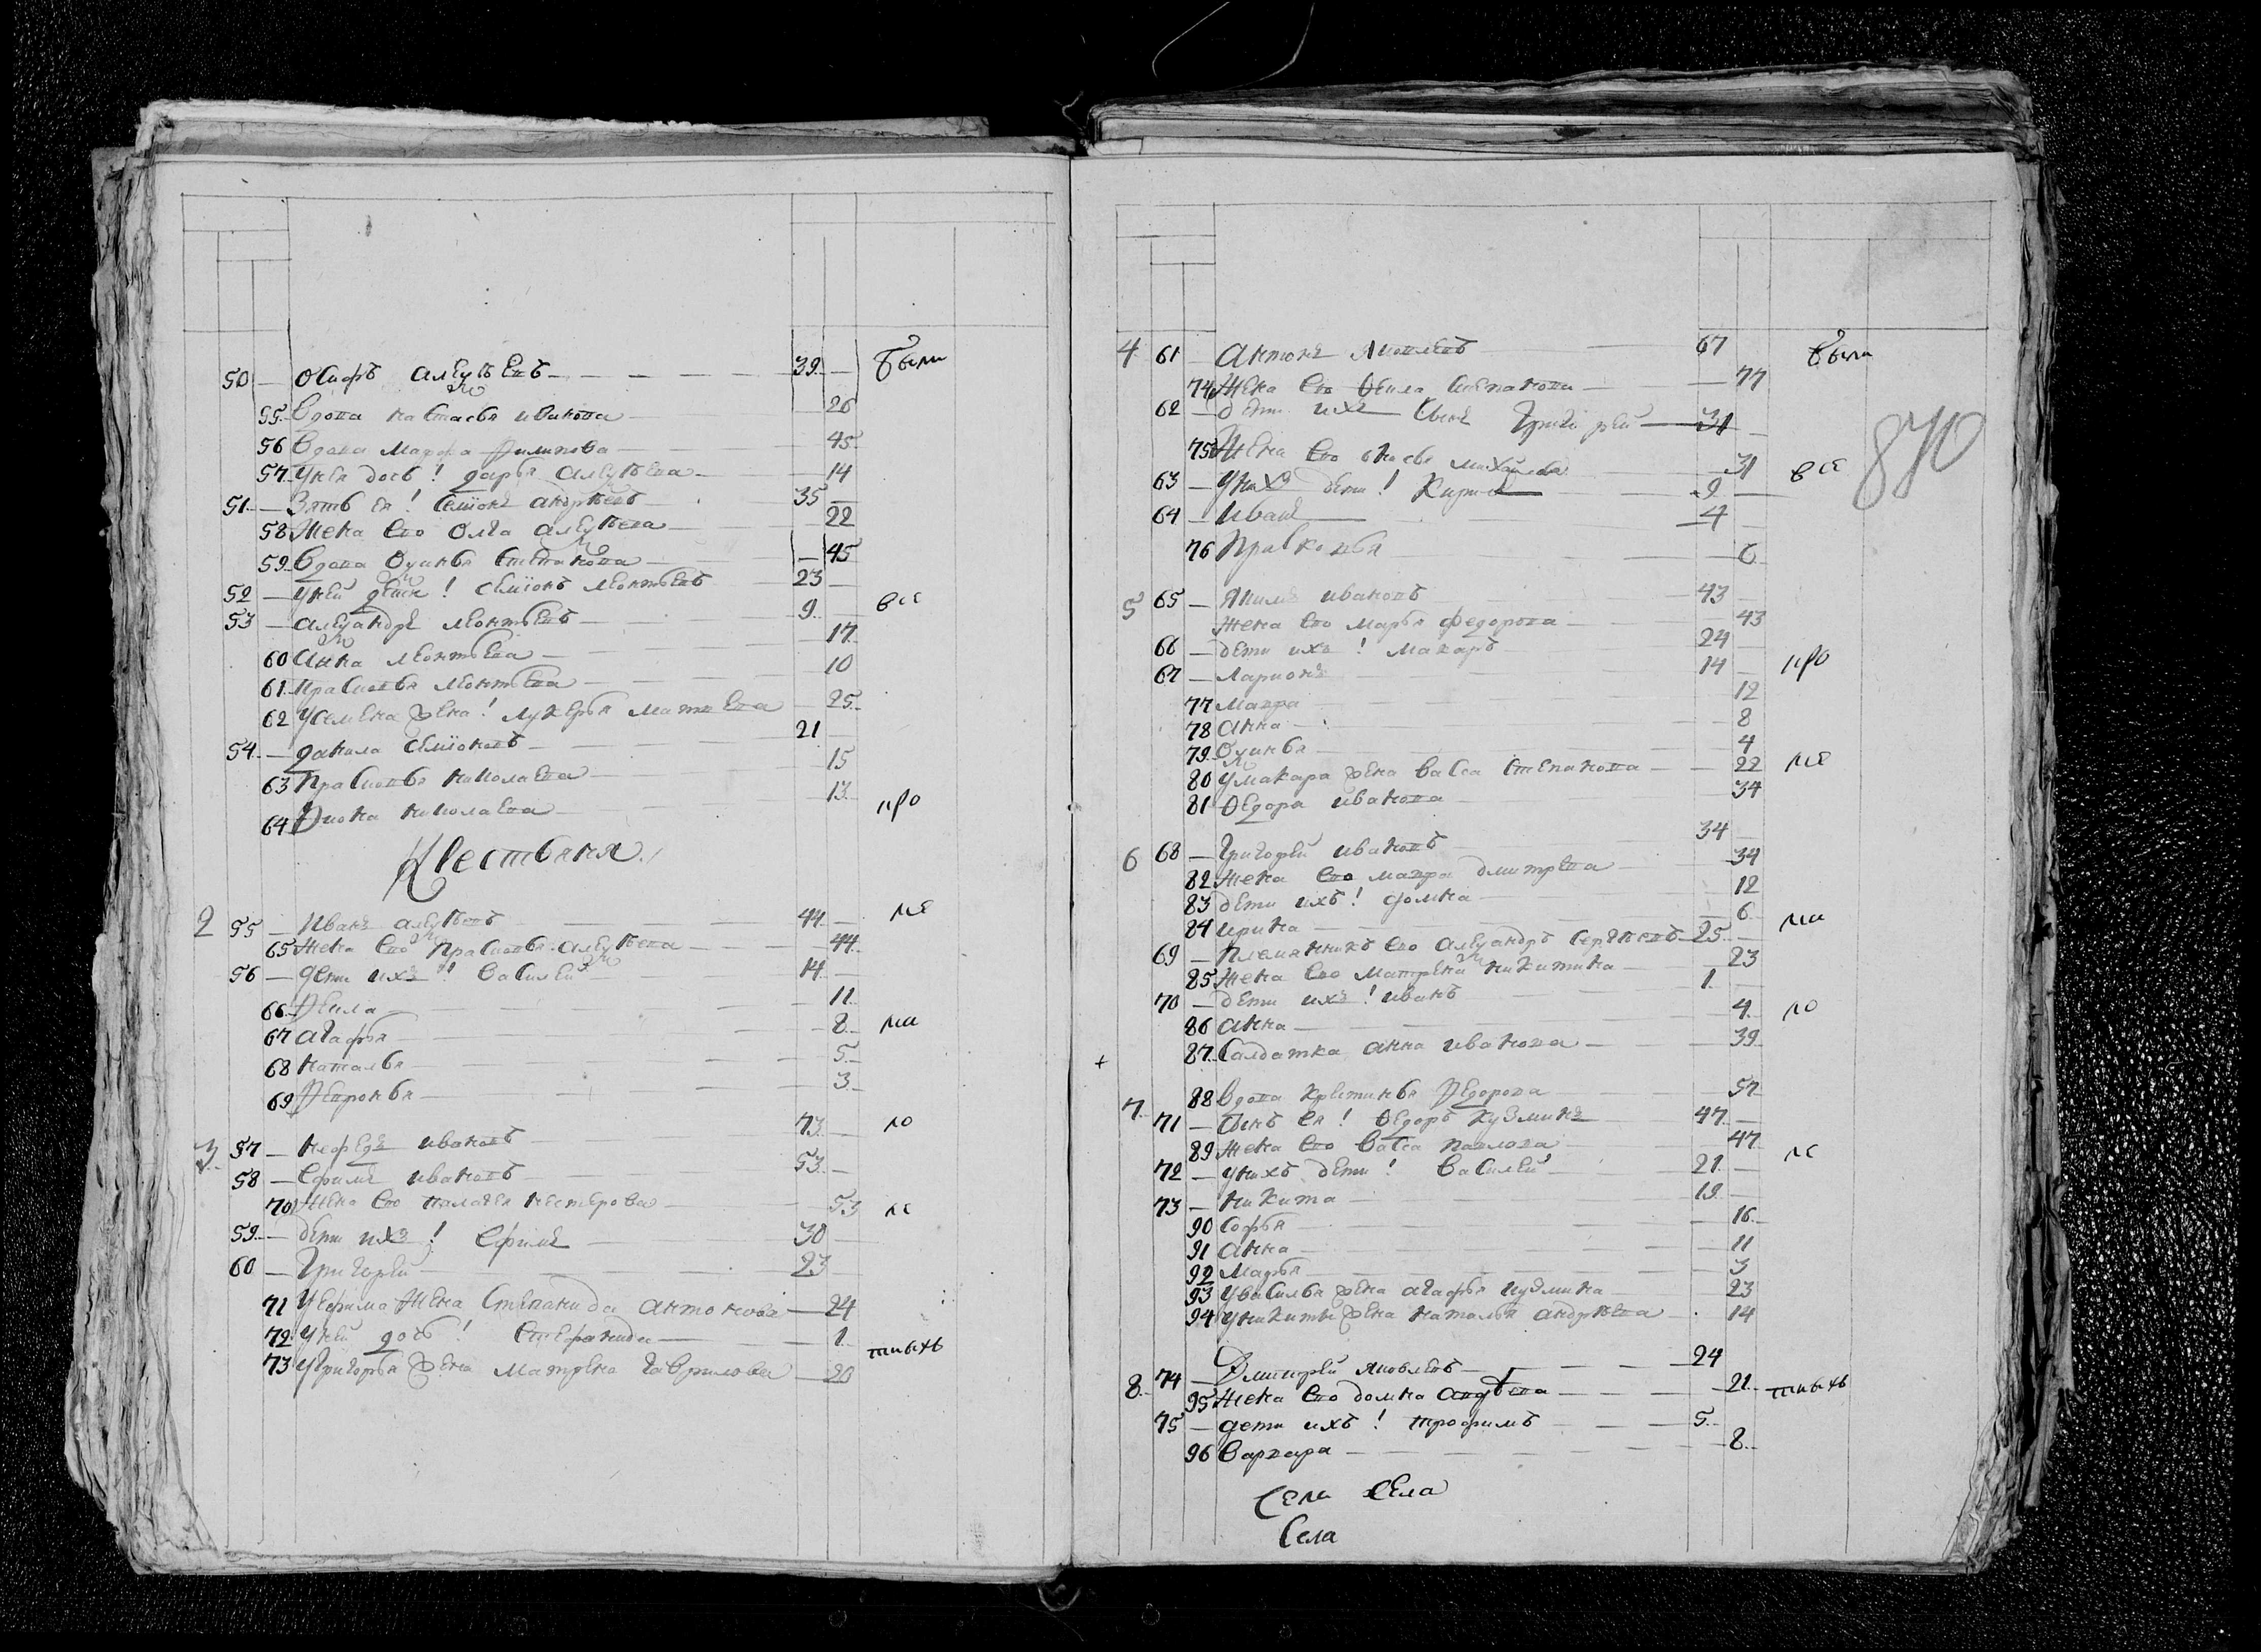 50 — Осифъ Алеѯѣевъ — 39 — были
55 Вдова Настасья Иванова — 26
56 Вдова Марфа Филипова — 45
57 У нея дочь! Дарья Алеѯѣева — 14
51 — Зять ея! Семіонъ Андрѣевъ 35 —
58 Жена ево Олга Алеѯѣева — 22
59 Вдова Оѯинья Степанова — 45
52 — У ней дети! Семіонъ Леонтьевъ 23 —
53 — Алеѯандръ Леонтьевъ — 9 — все
60 Анна Леонтьева — 17
61 Прасковья Леонтьева — 10
62 У Семена жена! Лукерья Матвева — 25
54 — Данила Семіоновъ — 21
63 Прасковья Николаева — 15
64 Фиона Николаева — 13 про
Крестьяня
2 55 — Иванъ Алеѯѣевъ — 44 — ме
65 Жена ево Прасковья Алеѯѣева — 44
56 — Дети ихъ! Василей 14 —
66 Фекла — 11
67 Агафья — 8 ма
68 Наталья — 5
69 Февронья — 3
3 57 — Нефедъ Ивановъ 73 — ло
58 — Ефимъ Ивановъ 53 —
70 Жена ево Палагея Нестерова — 53 ле
59 — Дети ихъ! Ефимъ — 30
60 — Григорей — 23
71 У Ефима жена Степанида Антонова — 24
72 У ней дочь! Стефанида — 1
73 У Григорья жена Матрена Гаврилова — 20 тныхъ
4 61 — Антонъ Яковлевъ 67 были
74 Жена ево Фекла Степанова — 77
62 — Дети ихъ Сынъ Григорей — 31
75 Жена ево Михайлова 31 все
870
63 — У нихъ дети! Кирила — 9 —
64 — Иванъ — 4
76 Прасковья 6
5 65 — Якимъ Ивановъ 43
Жена ево Марья Федорова — 43
66 — Дети ихъ! Макаръ 24
67 — Ларионъ — 14 — про
77 Мавра 12
78 Анна — 8
79 Оѯинья — 4
80 У Макара жена Васса Степанова — 22 ме
81 Федора Иванова 34
6 68 — Григорей Ивановъ 34
82 Жена ево Мавра Дмитрева 34
83 Дети ихъ! Фомна 12
84 Ирина — 6 ма
69 — Племянникъ ево Алеѯандръ Сергѣевъ — 25
85 Жена ево Матрена Никитина — 23
70 — Дети ихъ! Иванъ 1
86 Анна — 4 ло
87 Салдатка Анна Иванова — 39
+
7 88 Вдова Крестинья Федорова 57
71 — Сынъ ея! Федоръ Кузминъ — 47 —
89 Жена ево Васса Павлова 47
72 — У нихъ дети! Василей 21 — ле
73 — Никита — 19
90 Софья — 16
91 Анна — 11
92 Марья — 3
93 У Василья жена Агафья Кузмина 23
94 У Никиты жена Наталья Андрѣева 14
8 74 — Дмитрей Яковлевъ — 24
95 Жена ево Домна — 21 тныхъ
75 — Дети ихъ! Трофимъ — 5
96 Варвара — 8
Села Села
Села